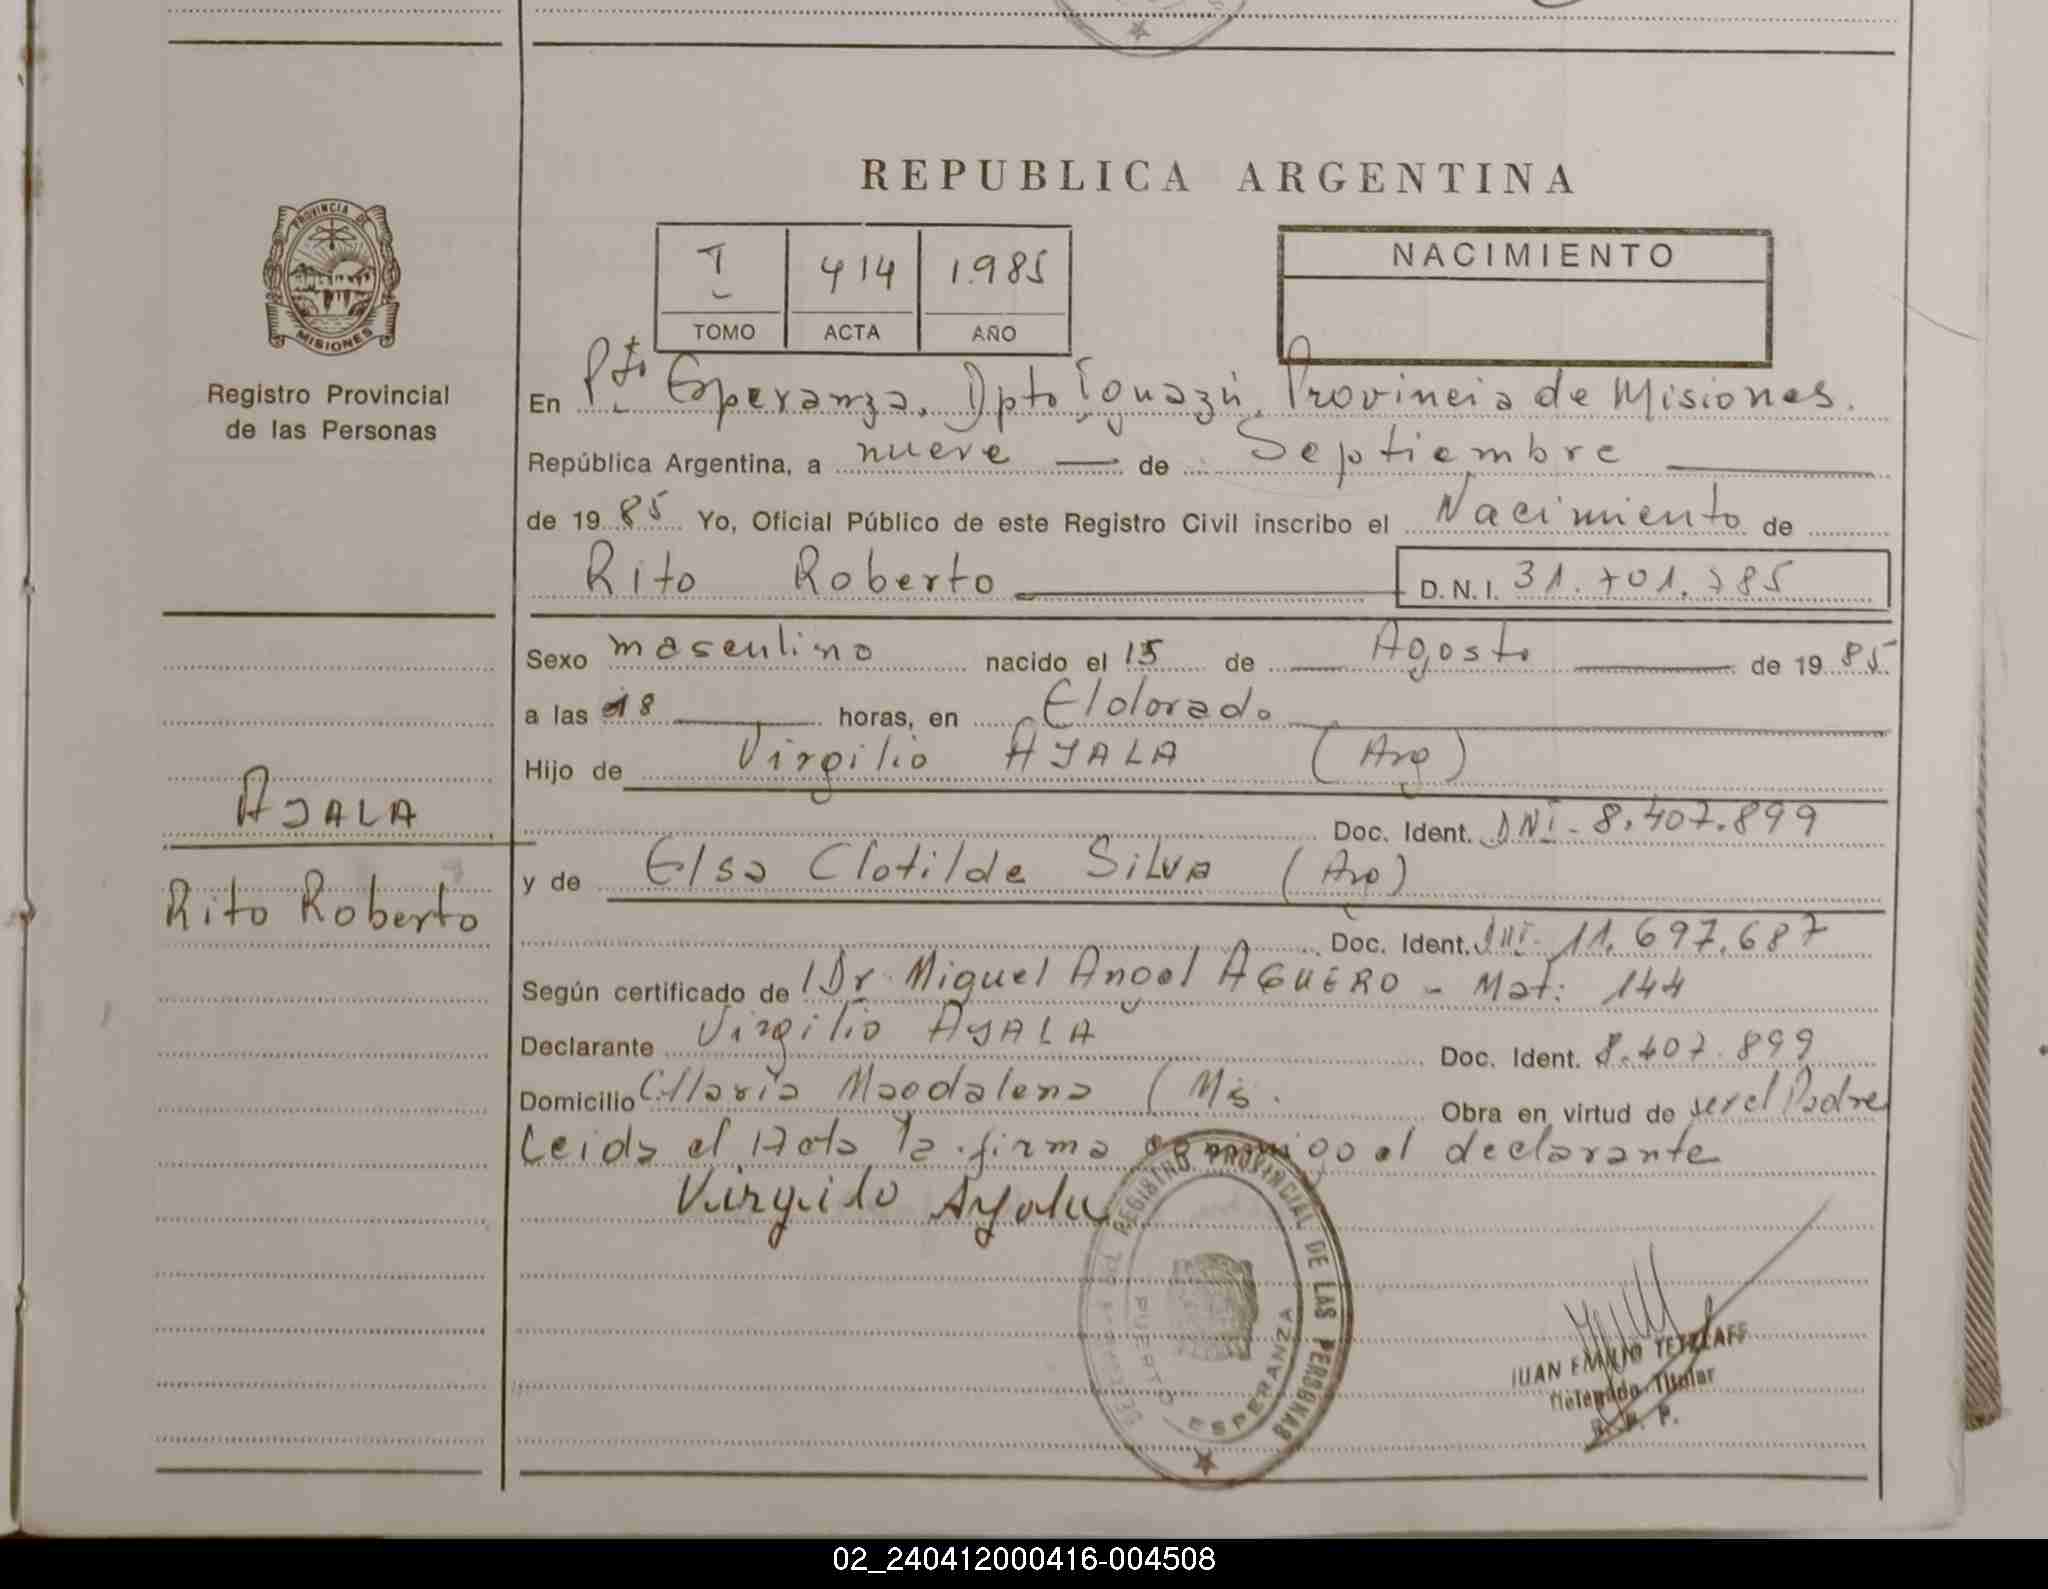 REPUBLICA ARGENTINA
PROVINCIA DE
MISIONES
Registro Provincial
de las Personas
I 414 1.985
TOMO ACTA AÑO
NACIMIENTO
En Pto. Esperanza. Dpto Iguazú. Provincia de Misiones.
República Argentina, a nueve — de Septiembre —
de 19 85 Yo, Oficial Público de este Registro Civil inscribo el Nacimiento de
Rito Roberto — D. N. I. 31.701.785
Sexo masculino nacido el 15 de — Agosto — de 19 85
a las 18 — horas, en Eldorado
Hijo de Virgilio AYALA (Arg)
Doc. Ident. DNI - 8.407.899
y de Elsa Clotilde Silva (Arg)
Doc. Ident. DNI - 11.697.687
Según certificado de Dr. Miguel Angel AGUERO - Mat: 144
Declarante Virgilio AYALA Doc. Ident. 8.407.899
Domicilio C/Maria Magdalena (Mis. Obra en virtud de ser el Padre
Leida el Acta la firma conmigo el declarante
Virgilio Ayala
AYALA
Rito Roberto
REGISTRO PROVINCIAL DE LAS PERSONAS
PUERTO ESPERANZA
JUAN EMILIO TETZLAFF
Delegado Titular
R. P. P.
02_240412000416-004508